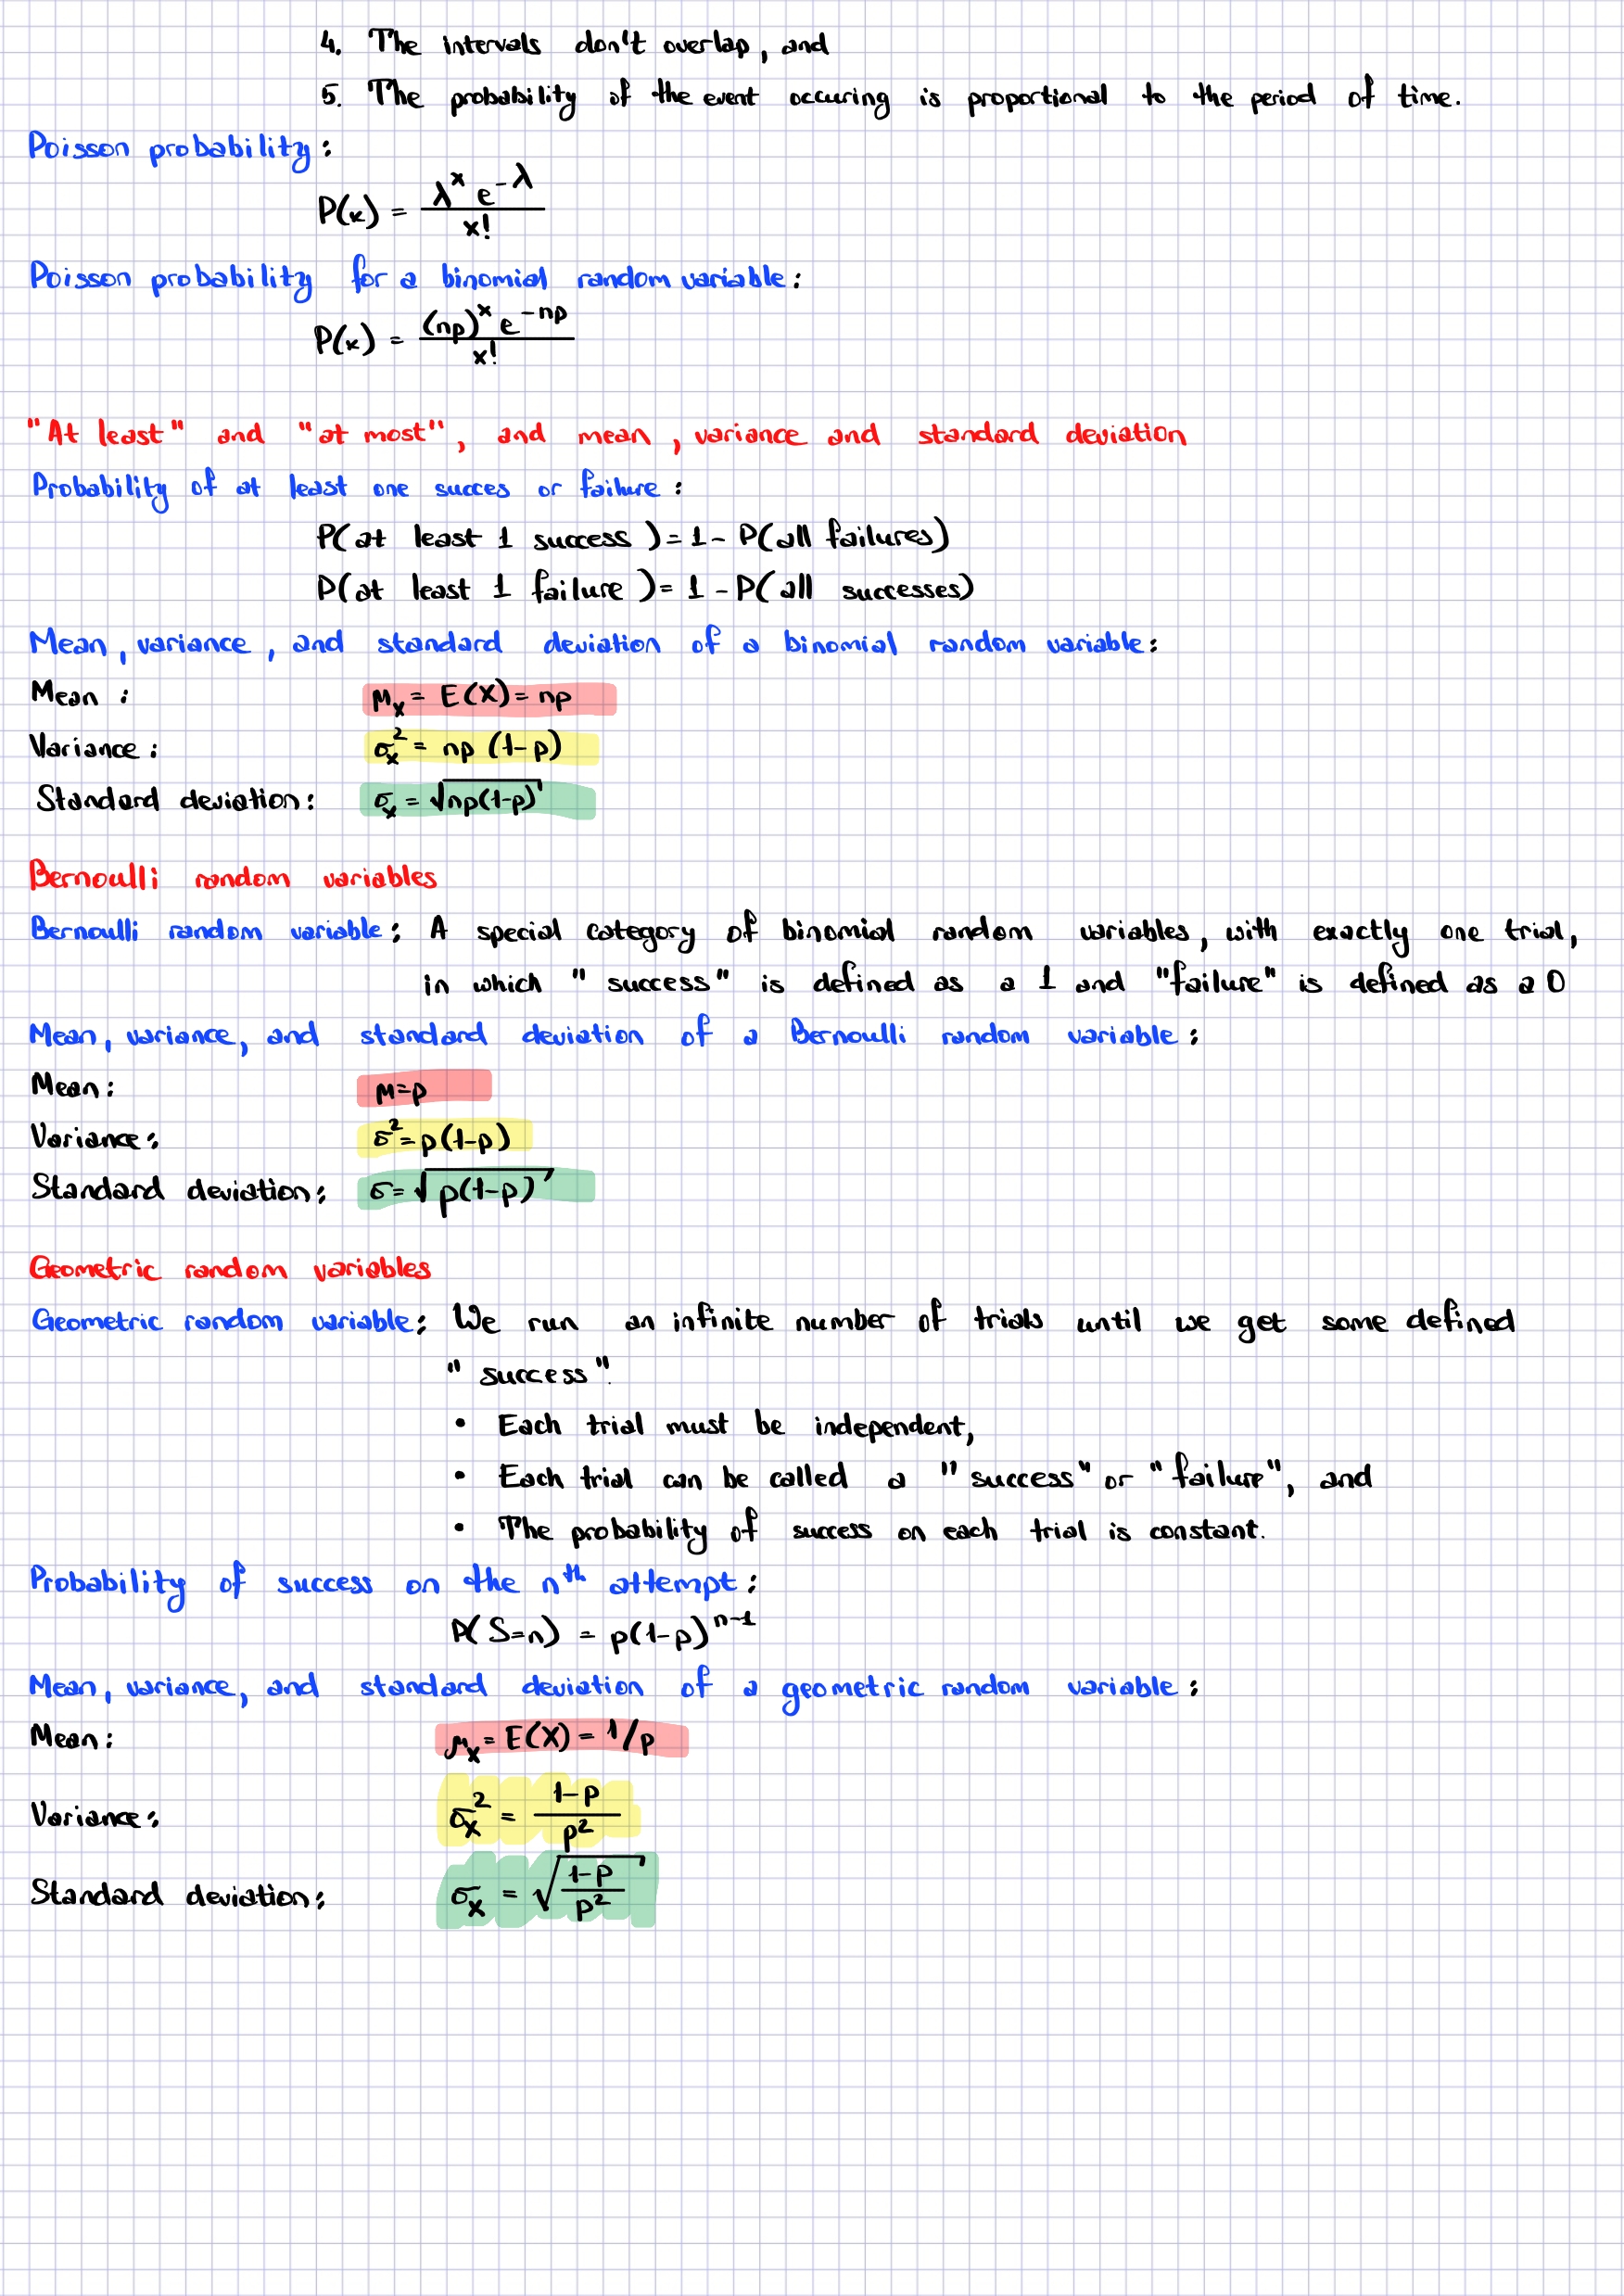 4. The intervals don't overlap, and
5. The probability of the event occuring is proportional to the period of time.
Poisson probability:
P(x) = λ^x e^-λ / x!
Poisson probability for a binomial random variable:
P(x) = (np)^x e^-np / x!
"At least" and "at most", and mean, variance and standard deviation
Probability of at least one succes or failure:
P(at least 1 success) = 1 - P(all failures)
P(at least 1 failure) = 1 - P(all successes)
Mean, variance, and standard deviation of a binomial random variable:
Mean: μ_X = E(X) = np
Variance: σ_X^2 = np(1-p)
Standard deviation: σ_X = √np(1-p)
Bernoulli random variables
Bernoulli random variable: A special category of binomial random variables, with exactly one trial,
in which "success" is defined as a 1 and "failure" is defined as a 0
Mean, variance, and standard deviation of a Bernoulli random variable:
Mean: μ=p
Variance: σ^2=p(1-p)
Standard deviation: σ=√p(1-p)
Geometric random variables
Geometric random variable: We run an infinite number of trials until we get some defined
"success".
• Each trial must be independent,
• Each trial can be called a "success" or "failure", and
• The probability of success on each trial is constant.
Probability of success on the n^th attempt:
P(S=n) = p(1-p)^n-1
Mean, variance, and standard deviation of a geometric random variable:
Mean: μ_X = E(X) = 1/p
Variance: σ_X^2 = 1-p / p^2
Standard deviation: σ_X = √1-p / p^2